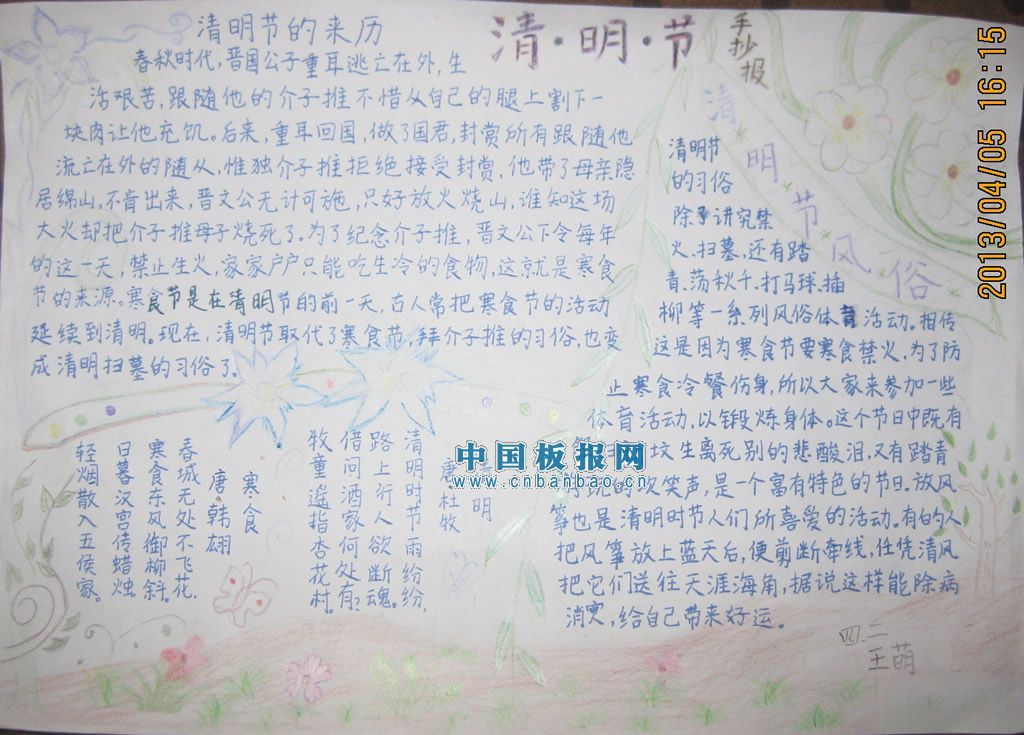 清·明·节
手抄报
2013/04/05 16:15
清明节的来历
春秋时代,晋国公子重耳逃亡在外,生
活艰苦,跟随他的介子推不惜从自己的腿上割下一
块肉让他充饥。后来,重耳回国,做了国君,封赏所有跟随他
流亡在外的随从,惟独介子推拒绝接受封赏,他带了母亲隐
居绵山,不肯出来,晋文公无计可施,只好放火烧山,谁知这场
大火却把介子推母子烧死了。为了纪念介子推,晋文公下令每年
的这一天,禁止生火,家家户户只能吃生冷的食物,这就是寒食
节的来源。寒食节是在清明节的前一天,古人常把寒食节的活动
延续到清明。现在,清明节取代了寒食节,拜介子推的习俗,也变
成清明扫墓的习俗了。
清明节风俗
清明节
的习俗
除了讲究禁
火、扫墓,还有踏
青、荡秋千、打马球、插
柳等一系列风俗体育活动。相传
这是因为寒食节要寒食禁火,为了防
止寒食冷餐伤身,所以大家来参加一些
体育活动,以锻炼身体。这个节日中既有
坟生离死别的悲酸泪,又有踏青
的欢笑声,是一个富有特色的节日。放风
筝也是清明时节人们所喜爱的活动。有的人
把风筝放上蓝天后,便剪断牵线,任凭清风
把它们送往天涯海角,据说这样能除病
消灾,给自己带来好运。
清明
唐杜牧
清明时节雨纷纷,
路上行人欲断魂。
借问酒家何处有?
牧童遥指杏花村。
寒食
唐·韩翃
春城无处不飞花,
寒食东风御柳斜。
日暮汉宫传蜡烛
轻烟散入五侯家。
中国板报网
www.cnbanbao.cn
四.二
王萌